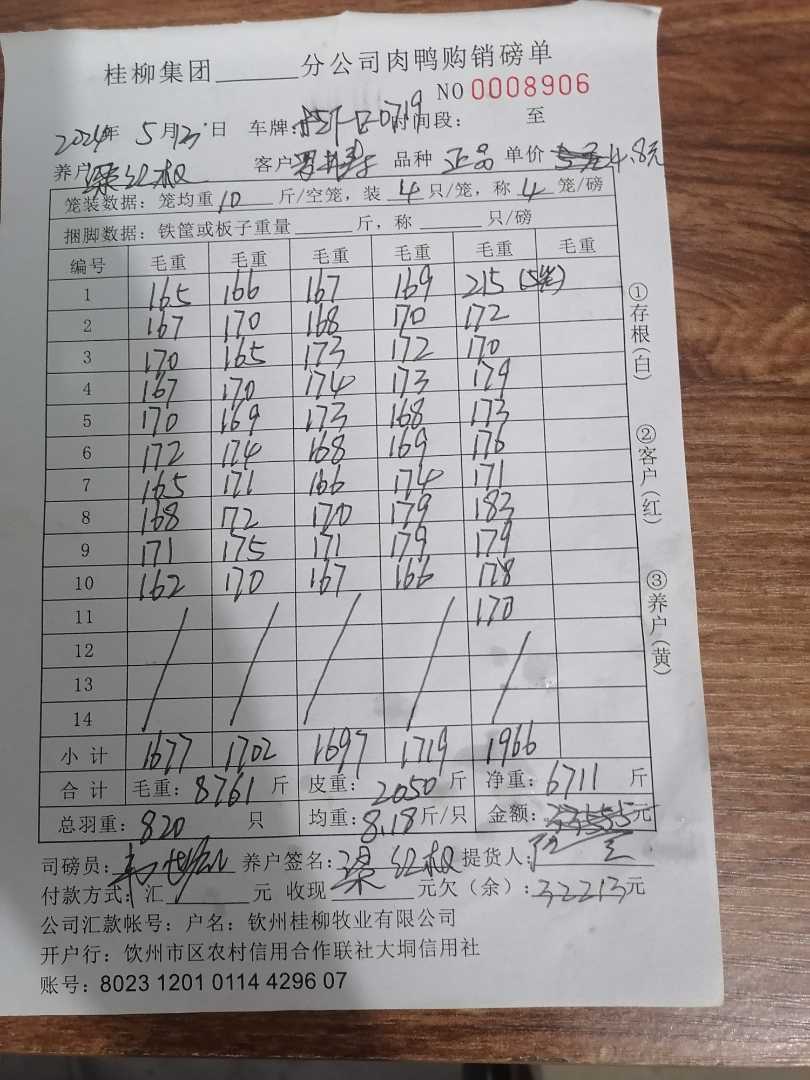 桂柳集团______分公司肉鸭购销磅单
NO 0008906
2024年 5月13日 车牌: 0719 时间段: 至
养户 梁红权 客户 品种 正品 单价 4.8元
笼装数据: 笼均重 10 斤/空笼, 装 4 只/笼, 称 4 笼/磅
捆脚数据: 铁筐或板子重量______斤, 称______只/磅
编号 毛重 毛重 毛重 毛重 毛重 毛重
1 165 166 167 169 215 (5笼)
2 167 170 168 170 172
3 170 165 173 172 170
4 167 170 174 173 179
5 170 169 173 168 173
6 172 174 168 169 176
7 165 171 166 174 171
8 168 172 170 179 183
9 171 175 171 179 179
10 162 170 167 166 178
11 170
12
13
14
小计 1677 1702 1697 1719 1966
合计 毛重: 8761 斤 皮重: 2050 斤 净重: 6711 斤
总羽重: 820 只 均重: 8.18 斤/只 金额: 元
司磅员: 养户签名: 梁红权 提货人:
付款方式: 汇______元 收现______元欠(余): 32213元
公司汇款帐号: 户名: 钦州桂柳牧业有限公司
开户行: 钦州市区农村信用合作联社大垌信用社
账号: 8023 1201 0114 4296 07
①存根(白)
②客户(红)
③养户(黄)